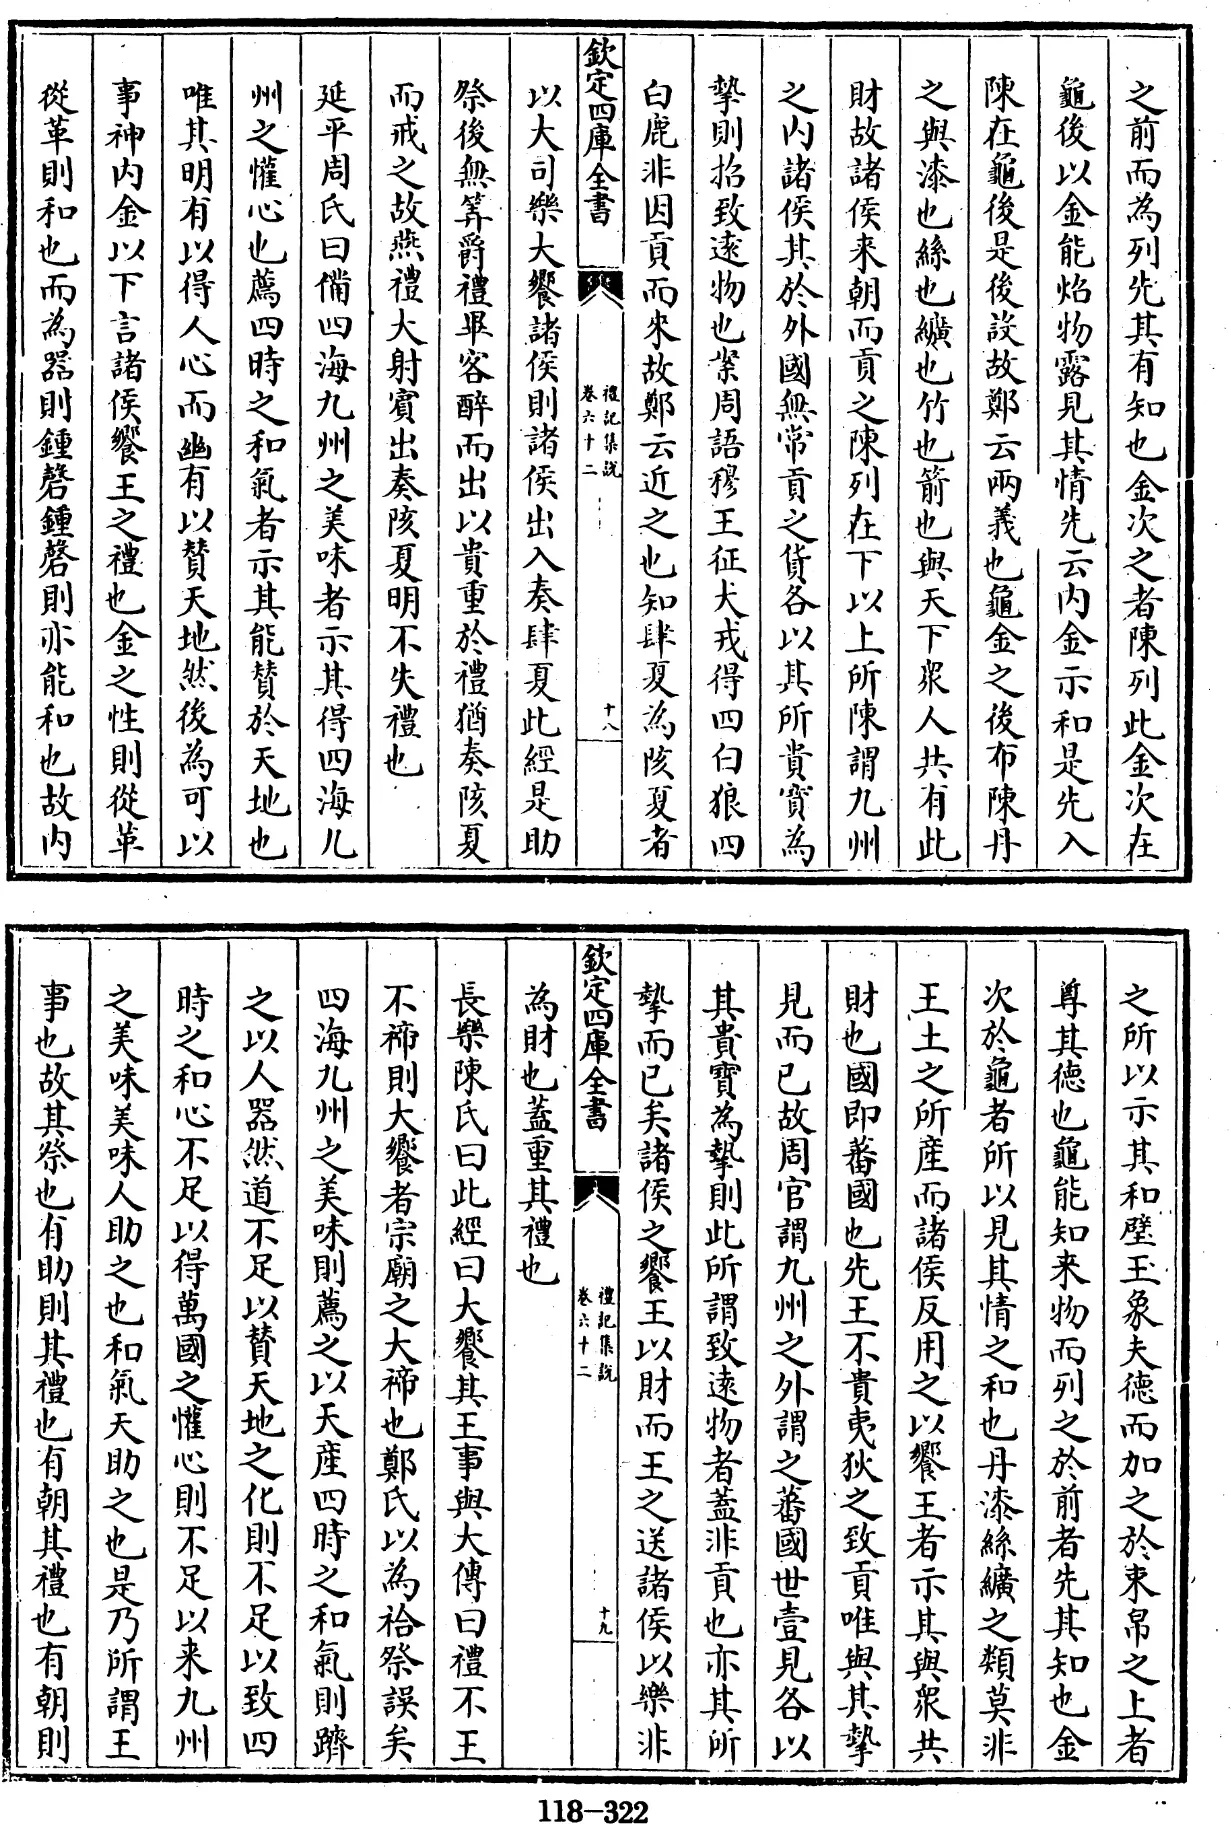 之前而為列先其有知也金次之者陳列此金次在
龜後以金能炤物露見其情先云内金示和是先入
陳在龜後是後設故鄭云兩義也龜金之後布陳丹
之與漆也絲也纊也竹也箭也與天下衆人共有此
財故諸侯来朝而貢之陳列在下以上所陳謂九州
之内諸侯其於外國無常貢之貨各以其所貴寳為
摯則招致逺物也案周語穆王征犬戎得四白狼四
白鹿非因貢而来故鄭云近之也知肆夏為陔夏者
欽定四庫全書
禮記集説
卷六十二
十八
以大司樂大饗諸侯則諸侯出入奏肆夏此經是助
祭後無筭爵禮畢客醉而出以貴重於禮猶奏陔夏
而戒之故燕禮大射賔出奏陔夏明不失禮也
延平周氏曰備四海九州之美味者示其得四海九
州之懽心也薦四時之和氣者示其能賛於天地也
唯其明有以得人心而幽有以賛天地然後為可以
事神内金以下言諸侯饗王之禮也金之性則從革
從革則和也而為器則鍾磬鍾磬則亦能和也故内
之所以示其和璧玉象夫徳而加之於束帛之上者
尊其徳也龜能知来物而列之於前者先其知也金
次於龜者所以見其情之和也丹漆絲纊之類莫非
王土之所産而諸侯反用之以饗王者示其與衆共
財也國即蕃國也先王不貴夷狄之致貢唯與其摯
見而已故周官謂九州之外謂之蕃國世壹見各以
其貴寳為摯則此所謂致逺物者蓋非貢也亦其所
摯而已矣諸侯之饗王以財而王之送諸侯以樂非
欽定四庫全書
禮記集説
卷六十二
十九
為財也蓋重其禮也
長樂陳氏曰此經曰大饗其王事與大傳曰禮不王
不禘則大饗者宗廟之大禘也鄭氏以為祫祭誤矣
四海九州之美味則薦之以天産四時之和氣則躋
之以人器然道不足以賛天地之化則不足以致四
時之和心不足以得萬國之懽心則不足以来九州
之美味美味人助之也和氣天助之也是乃所謂王
事也故其祭也有助則其禮也有朝其禮也有朝則
118-322